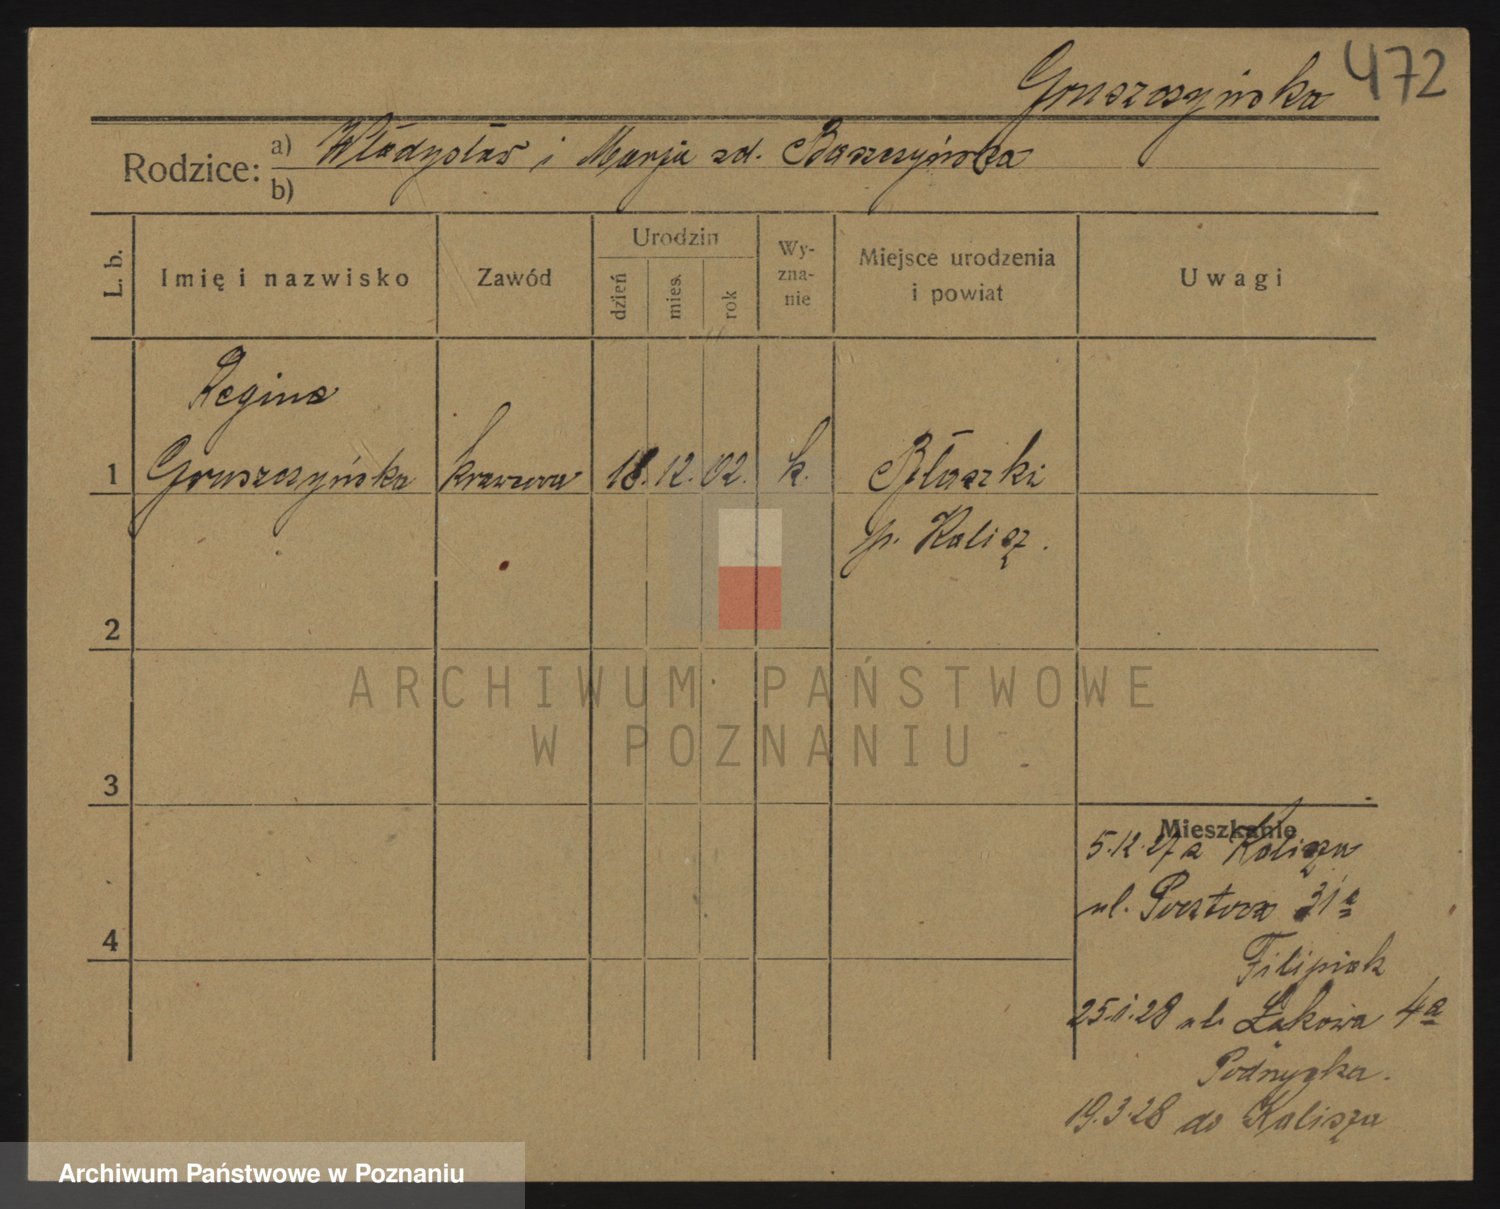 Gruszczyńska 472
Rodzice: a) Władysław i Marja zd. Baszczyńska
b)
L. b. Imię i nazwisko Zawód Urodzin dzień mies. rok Wyznanie Miejsce urodzenia i powiat Uwagi
Regina
1 Gruszczyńska krawcowa 18. 12. 02. k. Błaszki
p. Kalisz.
2
ARCHIWUM PAŃSTWOWE
W POZNANIU
3
Mieszkanie
5.12.27 z Kalisza
ul. Pocztowa 31a
Filipiak
4
25.1.28 ul. Łąkowa 4a
19.3.28 do Kalisza
Archiwum Państwowe w Poznaniu